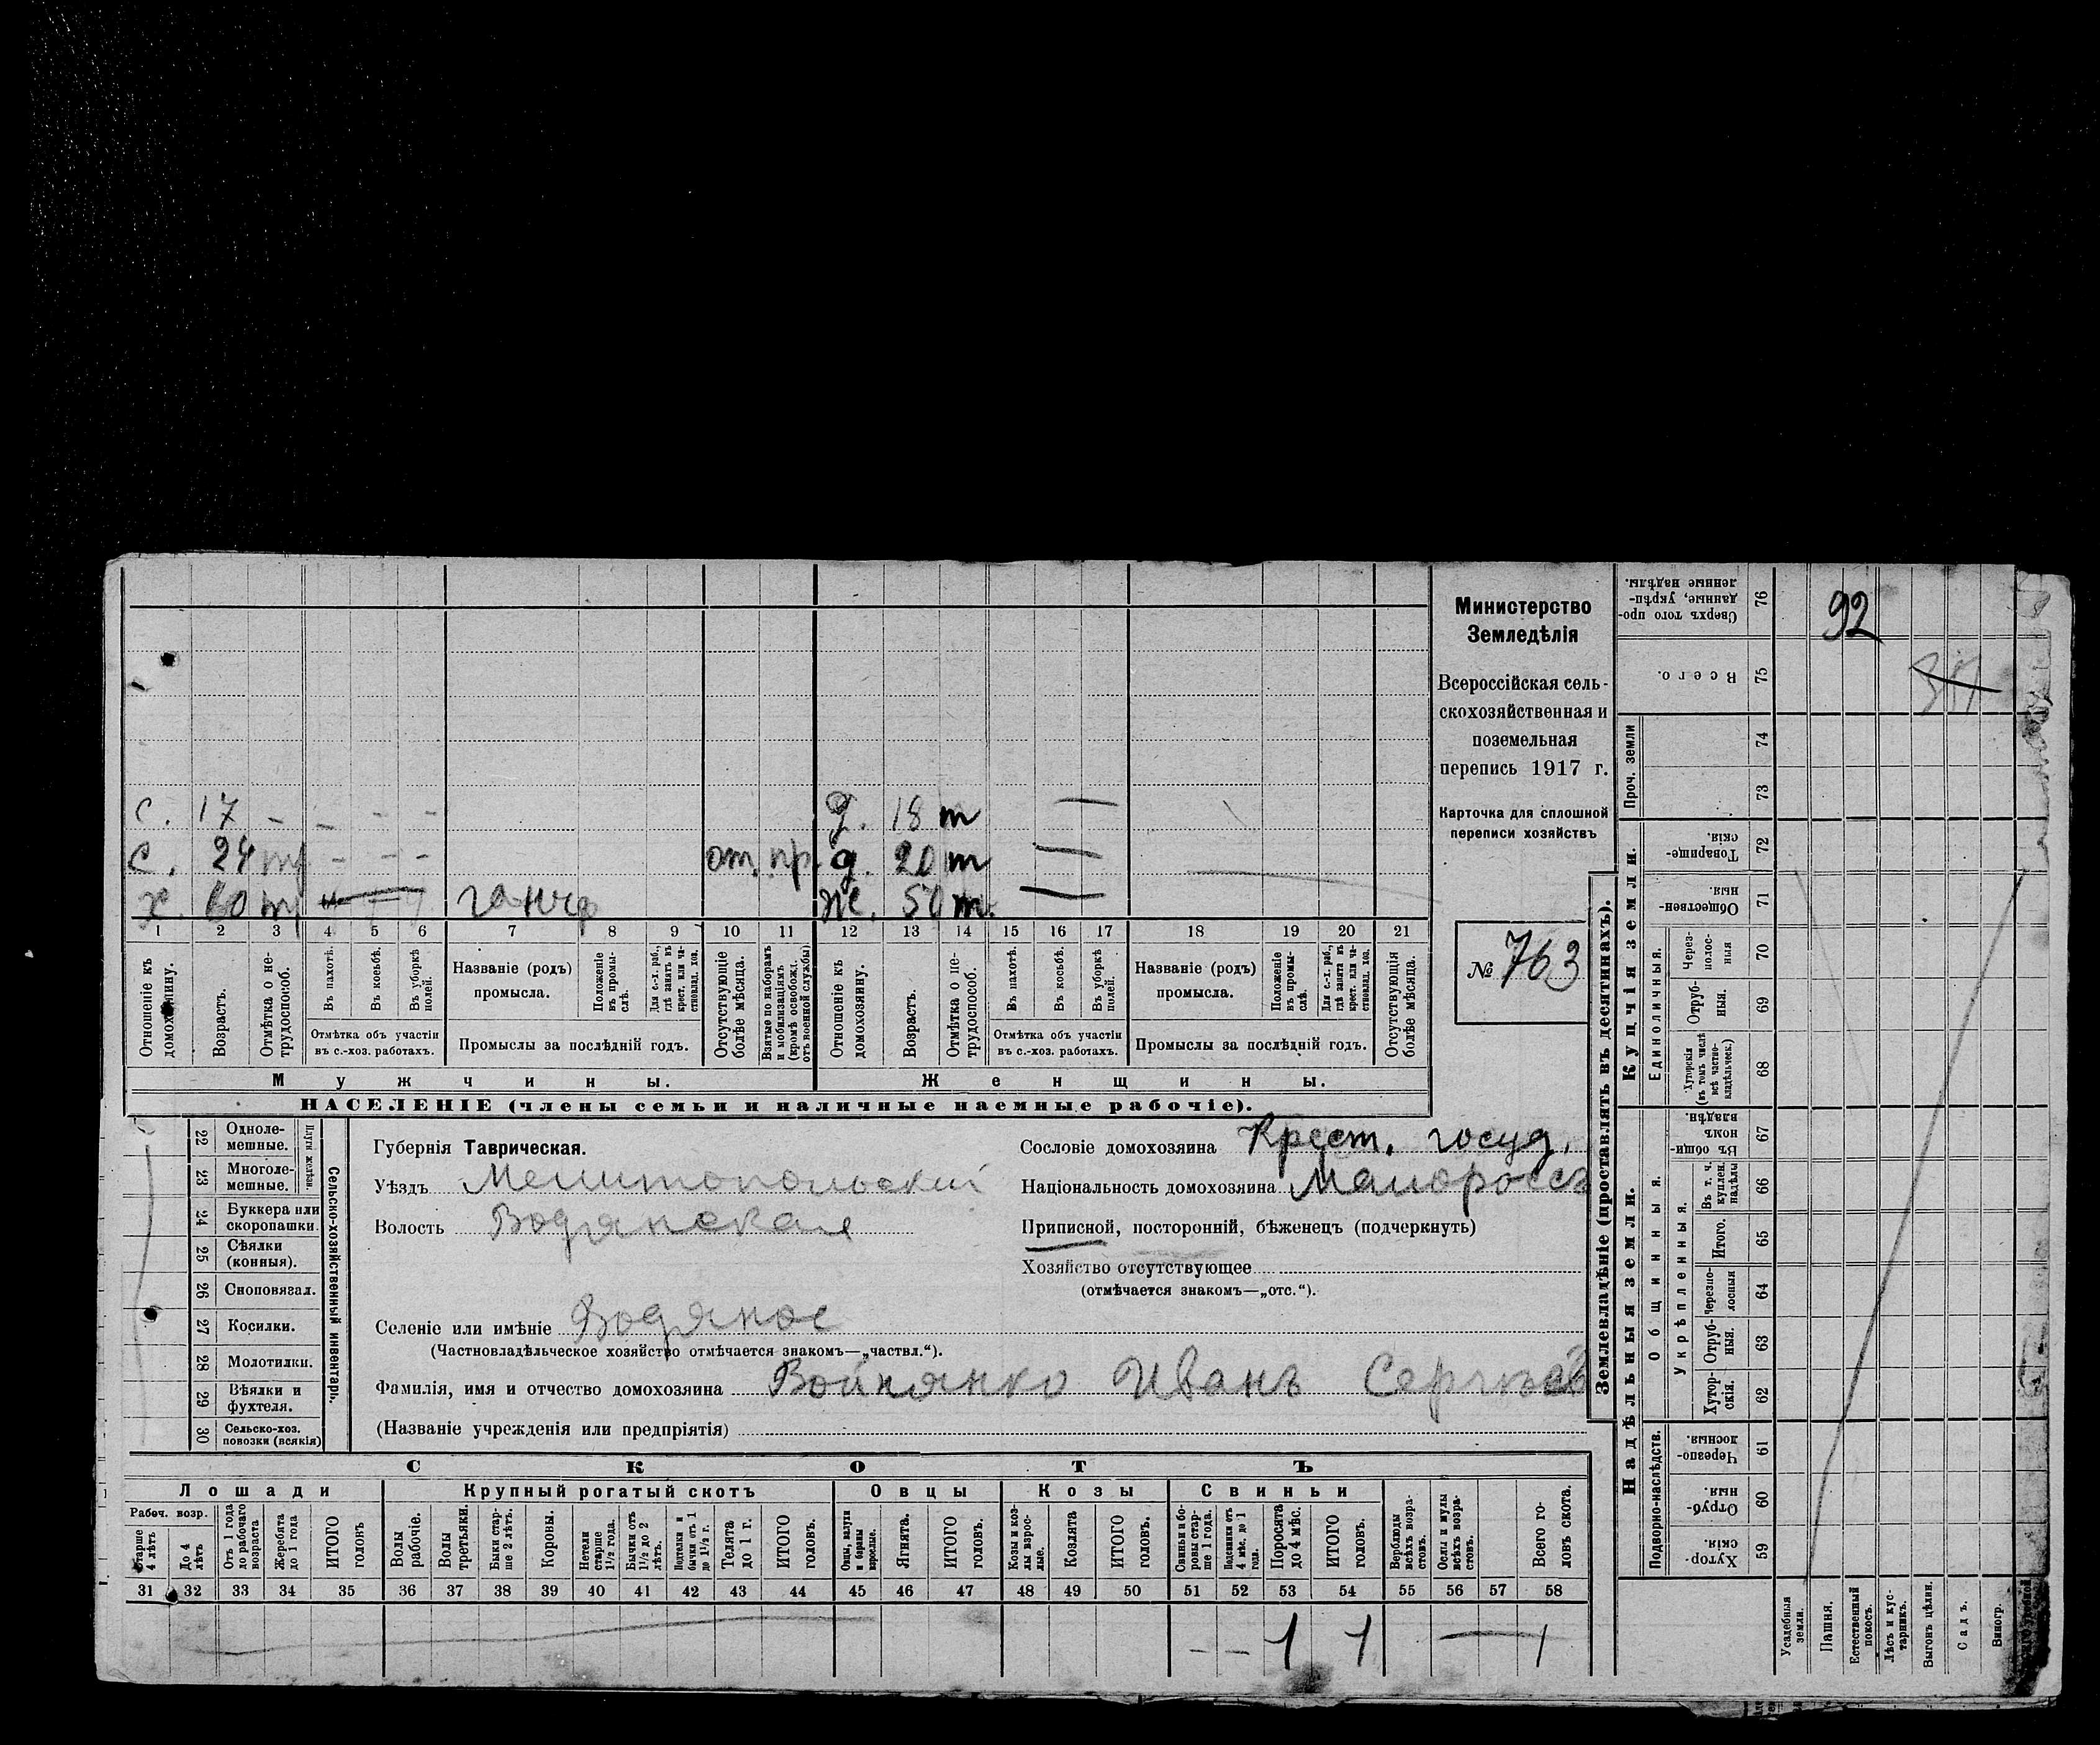 Министерство
Земледѣлія
Всероссійская сель-
скохозяйственная и
поземельная
перепись 1917 г.
Карточка для сплошной
переписи хозяйствъ
№ 763
с. 17 – – – – д. 18 т
с. 24 – – – от. пр. д. 20 т
х. 60 ж. 50 т.
1 2 3 4 5 6 7 8 9 10 11 12 13 14 15 16 17 18 19 20 21
Отношеніе къ домохозяину.
Возрастъ.
Отмѣтка о не-трудоспособ.
Въ пахотѣ.
Въ косьбѣ.
Въ уборкѣ полей.
Отмѣтка объ участіи въ с.-хоз. работахъ.
Названіе (родъ) промысла.
Положеніе въ промы-слѣ.
Для с.-х. раб., гдѣ занятъ въ крест. или ча-стновлад. хоз.
Промыслы за послѣдній годъ.
Отсутствующіе болѣе мѣсяца.
Взятые по наборамъ и мобилизаціямъ (кромѣ освобожд. отъ военной службы)
Отношеніе къ домохозяину.
Возрастъ.
Отмѣтка о не-трудоспособ.
Въ пахотѣ.
Въ косьбѣ.
Въ уборкѣ полей.
Отмѣтка объ участіи въ с.-хоз. работахъ.
Названіе (родъ) промысла.
Положеніе въ промы-слѣ.
Для с.-х. раб., гдѣ занята въ крест. или ча-стновлад. хоз.
Промыслы за послѣдній годъ.
Отсутствующія болѣе мѣсяца.
Мужчины. Женщины.
НАСЕЛЕНІЕ (члены семьи и наличные наемные рабочіе).
22 Одноле-мешные.
23 Многоле-мешные.
Плуги желѣзн.
24 Буккера или скоропашки.
25 Сѣялки (конныя).
26 Сноповязал.
27 Косилки.
28 Молотилки.
29 Вѣялки и фухтеля.
30 Сельско-хоз. повозки (всякія)
Сельско-хозяйственный инвентарь.
Губернія Таврическая.
Уѣздъ Мелитопольскій
Волость Водянская
Сословіе домохозяина Крест. госуд.
Національность домохозяина Малоросс
Приписной, посторонній, бѣженецъ (подчеркнуть)
Хозяйство отсутствующее
(отмѣчается знакомъ—„отс.“).
Селеніе или имѣніе Водяное
(Частновладѣльческое хозяйство отмѣчается знакомъ—„частвл.“).
Фамилія, имя и отчество домохозяина Войнянко Иванъ Сергѣевъ
(Названіе учрежденія или предпріятія)
СКОТЪ
Лошади Крупный рогатый скотъ Овцы Козы Свиньи
Рабоч. возр.
Старше 4 лѣтъ
До 4 лѣтъ
Отъ 1 года до рабочаго возраста
Жеребята до 1 года
ИТОГО головъ
Волы рабочіе.
Волы третьяки.
Быки стар-ше 2 лѣтъ.
Коровы.
Нетели старше 1½ года.
Бычки отъ 1½ до 2 лѣтъ.
Подтелки и бычки отъ 1 до 1½ г.
Телята до 1 г.
ИТОГО головъ.
Овцы, валухи и бараны взрослые.
Ягнята.
ИТОГО головъ.
Козы и коз-лы взрос-лые.
Козлята
ИТОГО головъ.
Свиньи и бо-ровы стар-ше 1 года.
Подсвинки отъ 4 мѣс. до 1 года.
Поросята до 4 мѣс.
ИТОГО головъ.
Верблюды всѣхъ возра-стовъ.
Ослы и мулы всѣхъ возра-стовъ.
Всего го-ловъ скота.
31 32 33 34 35 36 37 38 39 40 41 42 43 44 45 46 47 48 49 50 51 52 53 54 55 56 57 58
– – 1 1 — 1
Землевладѣніе (проставлять въ десятинахъ).
Надѣльныя земли. Купчія земли. Проч. земли
Подворно-наслѣдств.
Общинныя.
Укрѣпленныя.
Единоличныя.
59 Хутор-скія.
60 Отруб-ныя.
61 Черезпо-лосныя.
62 Хутор-скія.
63 Отруб-ныя.
64 Черезпо-лосныя
65 Итого.
66 Въ т. ч. куплен. надѣлы
67 Въ общин-номъ владѣн.
68 Хуторскія (въ томъ числѣ всѣ частно-владѣльческ.)
69 Отруб-ныя.
70 Через-полос-ныя
71 Обществен-ныя.
72 Товарище-скія.
73
74
75 Всего.
76 Сверхъ того про-данные, укрѣп-ленные надѣлы.
92
Усадебныя земли.
Пашня.
Естественный покосъ.
Лѣсъ и кус-тарникъ.
Выгонъ цѣлин.
Садъ.
Виногр.